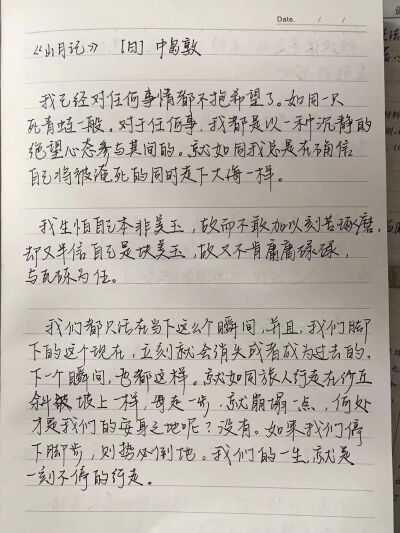 Date. / /
《山月记》 [日] 中岛敦
我已经对任何事情都不抱希望了。如同一只
死青蛙一般。对于任何事，我都是以一种沉静的
绝望心态参与其间的。就如同我总是在确信
自己将被淹死的同时走下大海一样。
我生怕自己本非美玉，故而不敢加以刻苦琢磨，
却又半信自己是块美玉，故又不肯庸庸碌碌，
与瓦砾为伍。
我们都只活在当下这么个瞬间，并且，我们脚
下的这个现在，立刻就会消失或者成为过去的，
下一个瞬间，也都这样。就如同旅人行走在
斜坡上一样，每走一步，就崩塌一点，何处
才是我们的安身之地呢？没有。如果我们停
下脚步，则势必倒地。我们的一生，就是
一刻不停的行走。